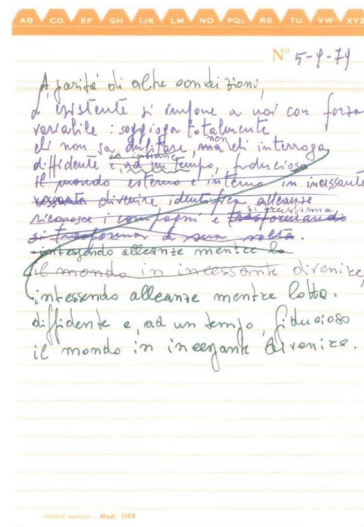 AB CD EF GH IJK LM NO PQ RS TU VW XYZ
N° 5-9-79
A parità di altre condizioni,
l'esistente si impone a noi con forza
variabile: soggioga totalmente
chi non sa dubitare, ma chi non interroga
diffidente e, ad un tempo, fiducioso
il mondo esterno e interno in incessante
divenire, identifica alleanze
riconosce i compagni e trasformando
si trasforma a sua volta.
intessendo alleanze mentre lo
il mondo in incessante divenire,
intessendo alleanze mentre lotta.
diffidente e, ad un tempo, fiducioso
il mondo in incessante divenire.
Mod. 1198